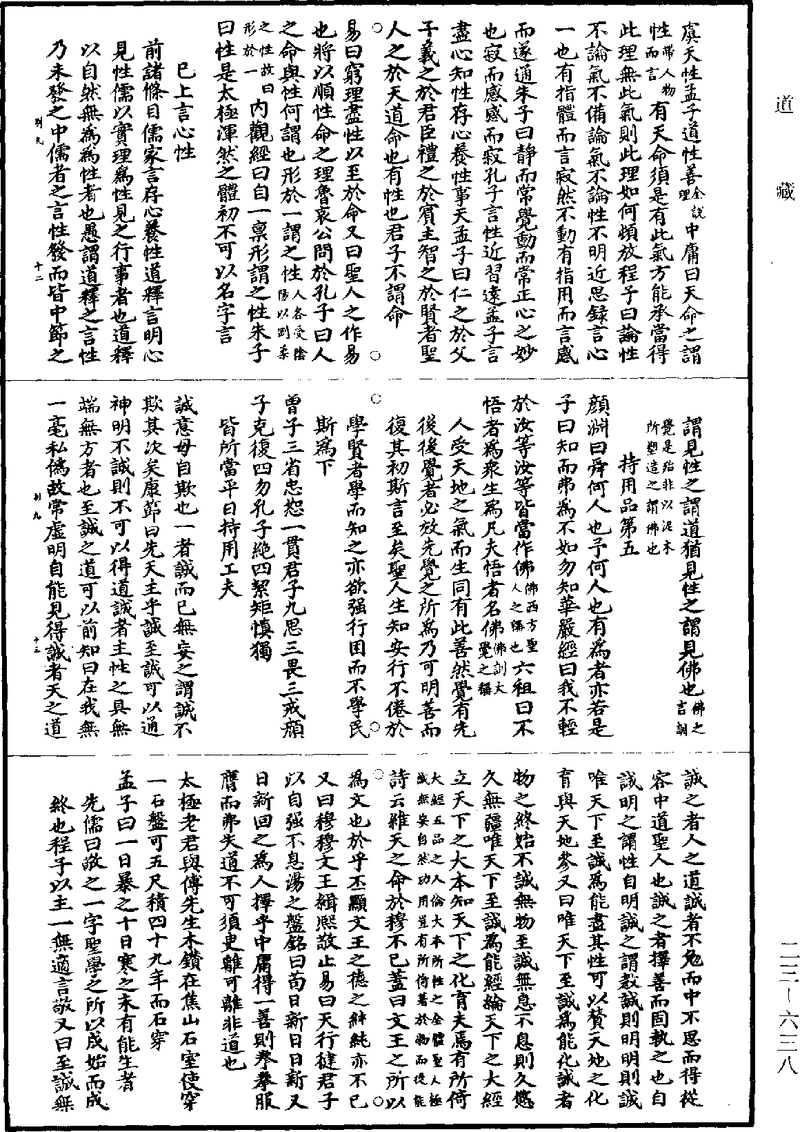 道藏
虞天性孟子道性善全說理中庸曰天命之謂
性帶人物而言有天命須是有此氣方能承當得
此理無此氣則此理如何頓放程子曰論性
不論氣不備論氣不論性不明近思錄言心
一也有指體而言寂然不動有指用而言感
而遂通朱子曰靜而常覺動而常正心之妙
也寂而感感而寂孔子言性近習遠孟子言
盡心知性存心養性事天孟子曰仁之於父
子義之於君臣禮之於賓主智之於賢者聖
人之於天道命也有性也君子不謂命
易曰窮理盡性以至於命又曰聖人之作易
也將以順性命之理魯哀公問於孔子曰人
之命與性何謂也形於一謂之性人各受陰陽以剛柔
之性故曰形於一內觀經曰自一稟形謂之性朱子
曰性是太極渾然之體初不可以名字言
已上言心性
前諸條目儒家言存心養性道釋言明心
見性儒以實理為性見之行事者也道釋
以自然無為為性者也愚謂道釋之言性
乃未發之中儒者之言性發而皆中節之
別九 十二
謂見性之謂道猶見性之謂見佛也佛之言訓
覺是殆非以泥木所塑造之謂佛也
持用品第五
顏淵曰舜何人也予何人也有為者亦若是
子曰知而弗為不如勿知華嚴經曰我不輕
於汝等汝等皆當作佛佛西方聖人之稱也六祖曰不
悟者為眾生為凡夫悟者名佛佛訓大覺之稱
人受天地之氣而生同有此善然覺有先
後後覺者必放先覺之所為乃可明善而
復其初斯言至矣聖人生知安行不倦於
學賢者學而知之亦欲强行困而不學民
斯為下
曾子三省忠恕一貫君子九思三畏三戒顏
子克復四勿孔子絶四絜矩慎獨
皆所當平日持用工夫
誠意毋自欺也一者誠而已無妄之謂誠不
欺其次矣康節曰先天主乎誠至誠可以通
神明不誠則不可以得道誠者主性之具無
端無方者也至誠之道可以前知曰在我無
一毫私偽故常虛明自能見得誠者天之道
別九 十三
誠之者人之道誠者不勉而中不思而得從
容中道聖人也誠之者擇善而固執之也自
誠明之謂性自明誠之謂教誠則明明則誠
唯天下至誠為能盡其性可以贊天地之化
育與天地參又曰唯天下至誠為能化誠者
物之終始不誠無物至誠無息不息則久悠
久無疆唯天下至誠為能經綸天下之大經
立天下之大本知天下之化育夫焉有所倚
大經五品之人倫大本所性之全體聖人極誠無妄自然功用豈有所倚著於物而後能
詩云維天之命於穆不已蓋曰文王之所以
為文也於乎丕顯文王之德之純純亦不已
又曰穆穆文王緝熙敬止易曰天行健君子
以自强不息湯之盤銘曰苟日新日日新又
日新回之為人擇乎中庸得一善則拳拳服
膺而弗失道不可須臾離可離非道也
太極老君與傅先生木鑽在焦山石室使穿
一石盤可五尺積四十九年而石穿
孟子曰一日暴之十日寒之未有能生者
先儒曰敬之一字聖學之所以成始而成
終也程子以主一無適言敬又曰至誠無
二三—六三八